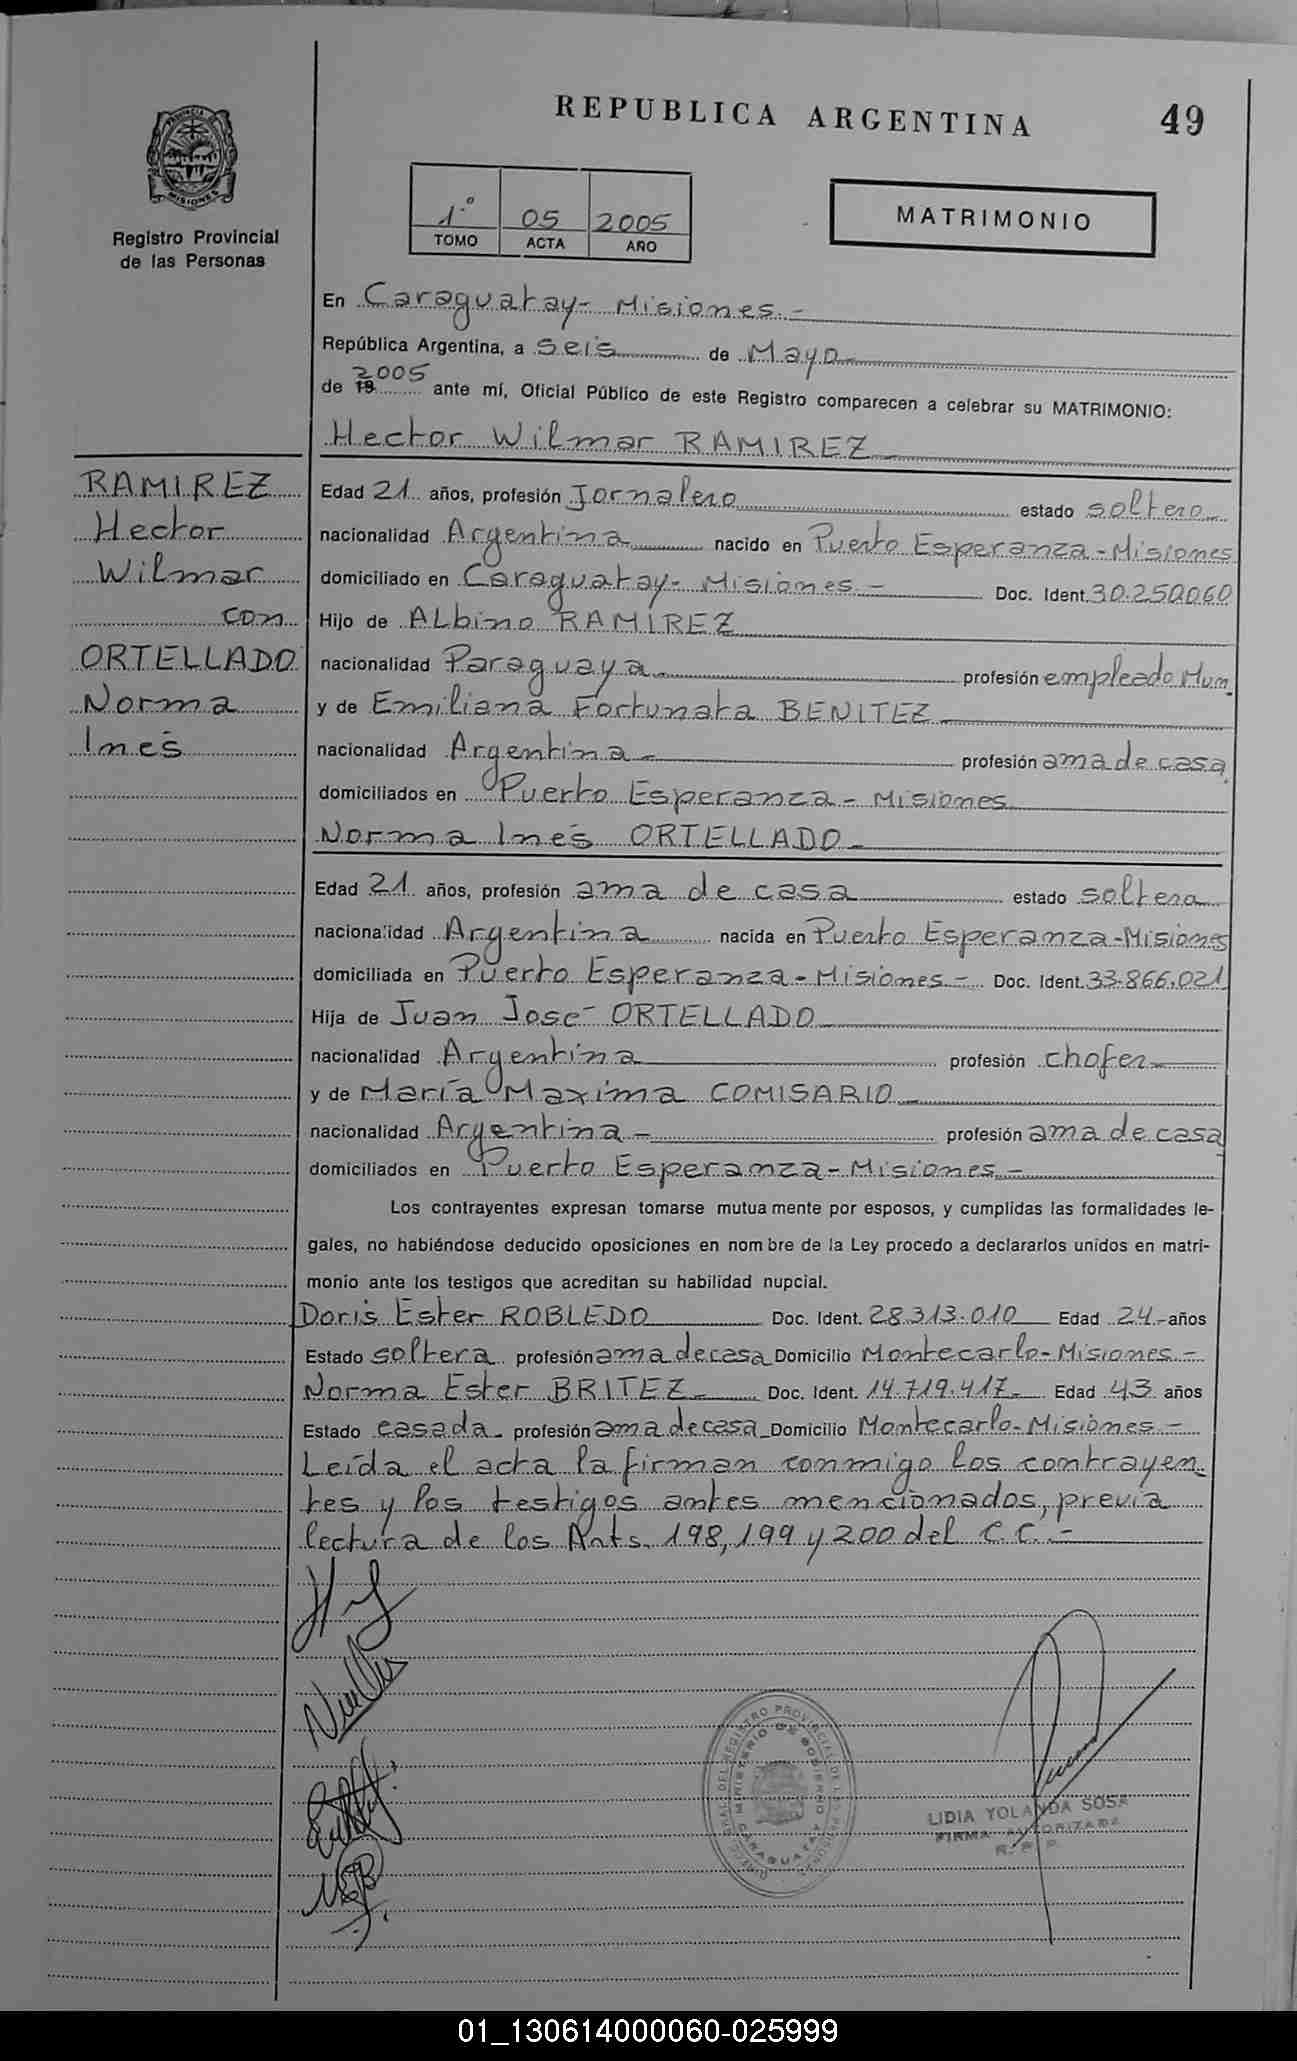 REPUBLICA ARGENTINA
49
PROVINCIA DE
MISIONES
Registro Provincial
de las Personas
1º 05 2005
TOMO ACTA AÑO
MATRIMONIO
En Caraguatay- Misiones.-
República Argentina, a seis de Mayo
de 19 2005 ante mí, Oficial Público de este Registro comparecen a celebrar su MATRIMONIO:
Hector Wilmar RAMIREZ
RAMIREZ
Hector
Wilmar
con
ORTELLADO
Norma
Inés
Edad 21 años, profesión Jornalero estado soltero
nacionalidad Argentina nacido en Puerto Esperanza-Misiones
domiciliado en Caraguatay- Misiones.- Doc. Ident. 30.250.060
Hijo de Albino RAMIREZ
nacionalidad Paraguaya profesión empleado Mun.
y de Emiliana Fortunata BENITEZ
nacionalidad Argentina- profesión ama de casa
domiciliados en Puerto Esperanza- Misiones
Norma Inés ORTELLADO-
Edad 21 años, profesión ama de casa estado soltera
nacionalidad Argentina nacida en Puerto Esperanza-Misiones
domiciliada en Puerto Esperanza-Misiones- Doc. Ident. 33.866.021
Hija de Juan José ORTELLADO
nacionalidad Argentina profesión chofer
y de María Maxima COMISARIO-
nacionalidad Argentina- profesión ama de casa
domiciliados en Puerto Esperanza-Misiones-
Los contrayentes expresan tomarse mutuamente por esposos, y cumplidas las formalidades le-
gales, no habiéndose deducido oposiciones en nombre de la Ley procedo a declararlos unidos en matri-
monio ante los testigos que acreditan su habilidad nupcial.
Doris Ester ROBLEDO Doc. Ident. 28.313.010 Edad 24 años
Estado soltera profesión ama de casa Domicilio Montecarlo-Misiones-
Norma Ester BRITEZ- Doc. Ident. 14.719.417- Edad 43 años
Estado casada profesión ama de casa Domicilio Montecarlo-Misiones-
Leída el acta la firman conmigo los contrayen-
tes y los testigos antes mencionados, previa
lectura de los Arts. 198, 199 y 200 del C.C.-
MINISTERIO DE GOBIERNO
CARAGUATAY
LIDIA YOLANDA SOSA
FIRMA AUTORIZADA
R. P. P.
01_130614000060-025999